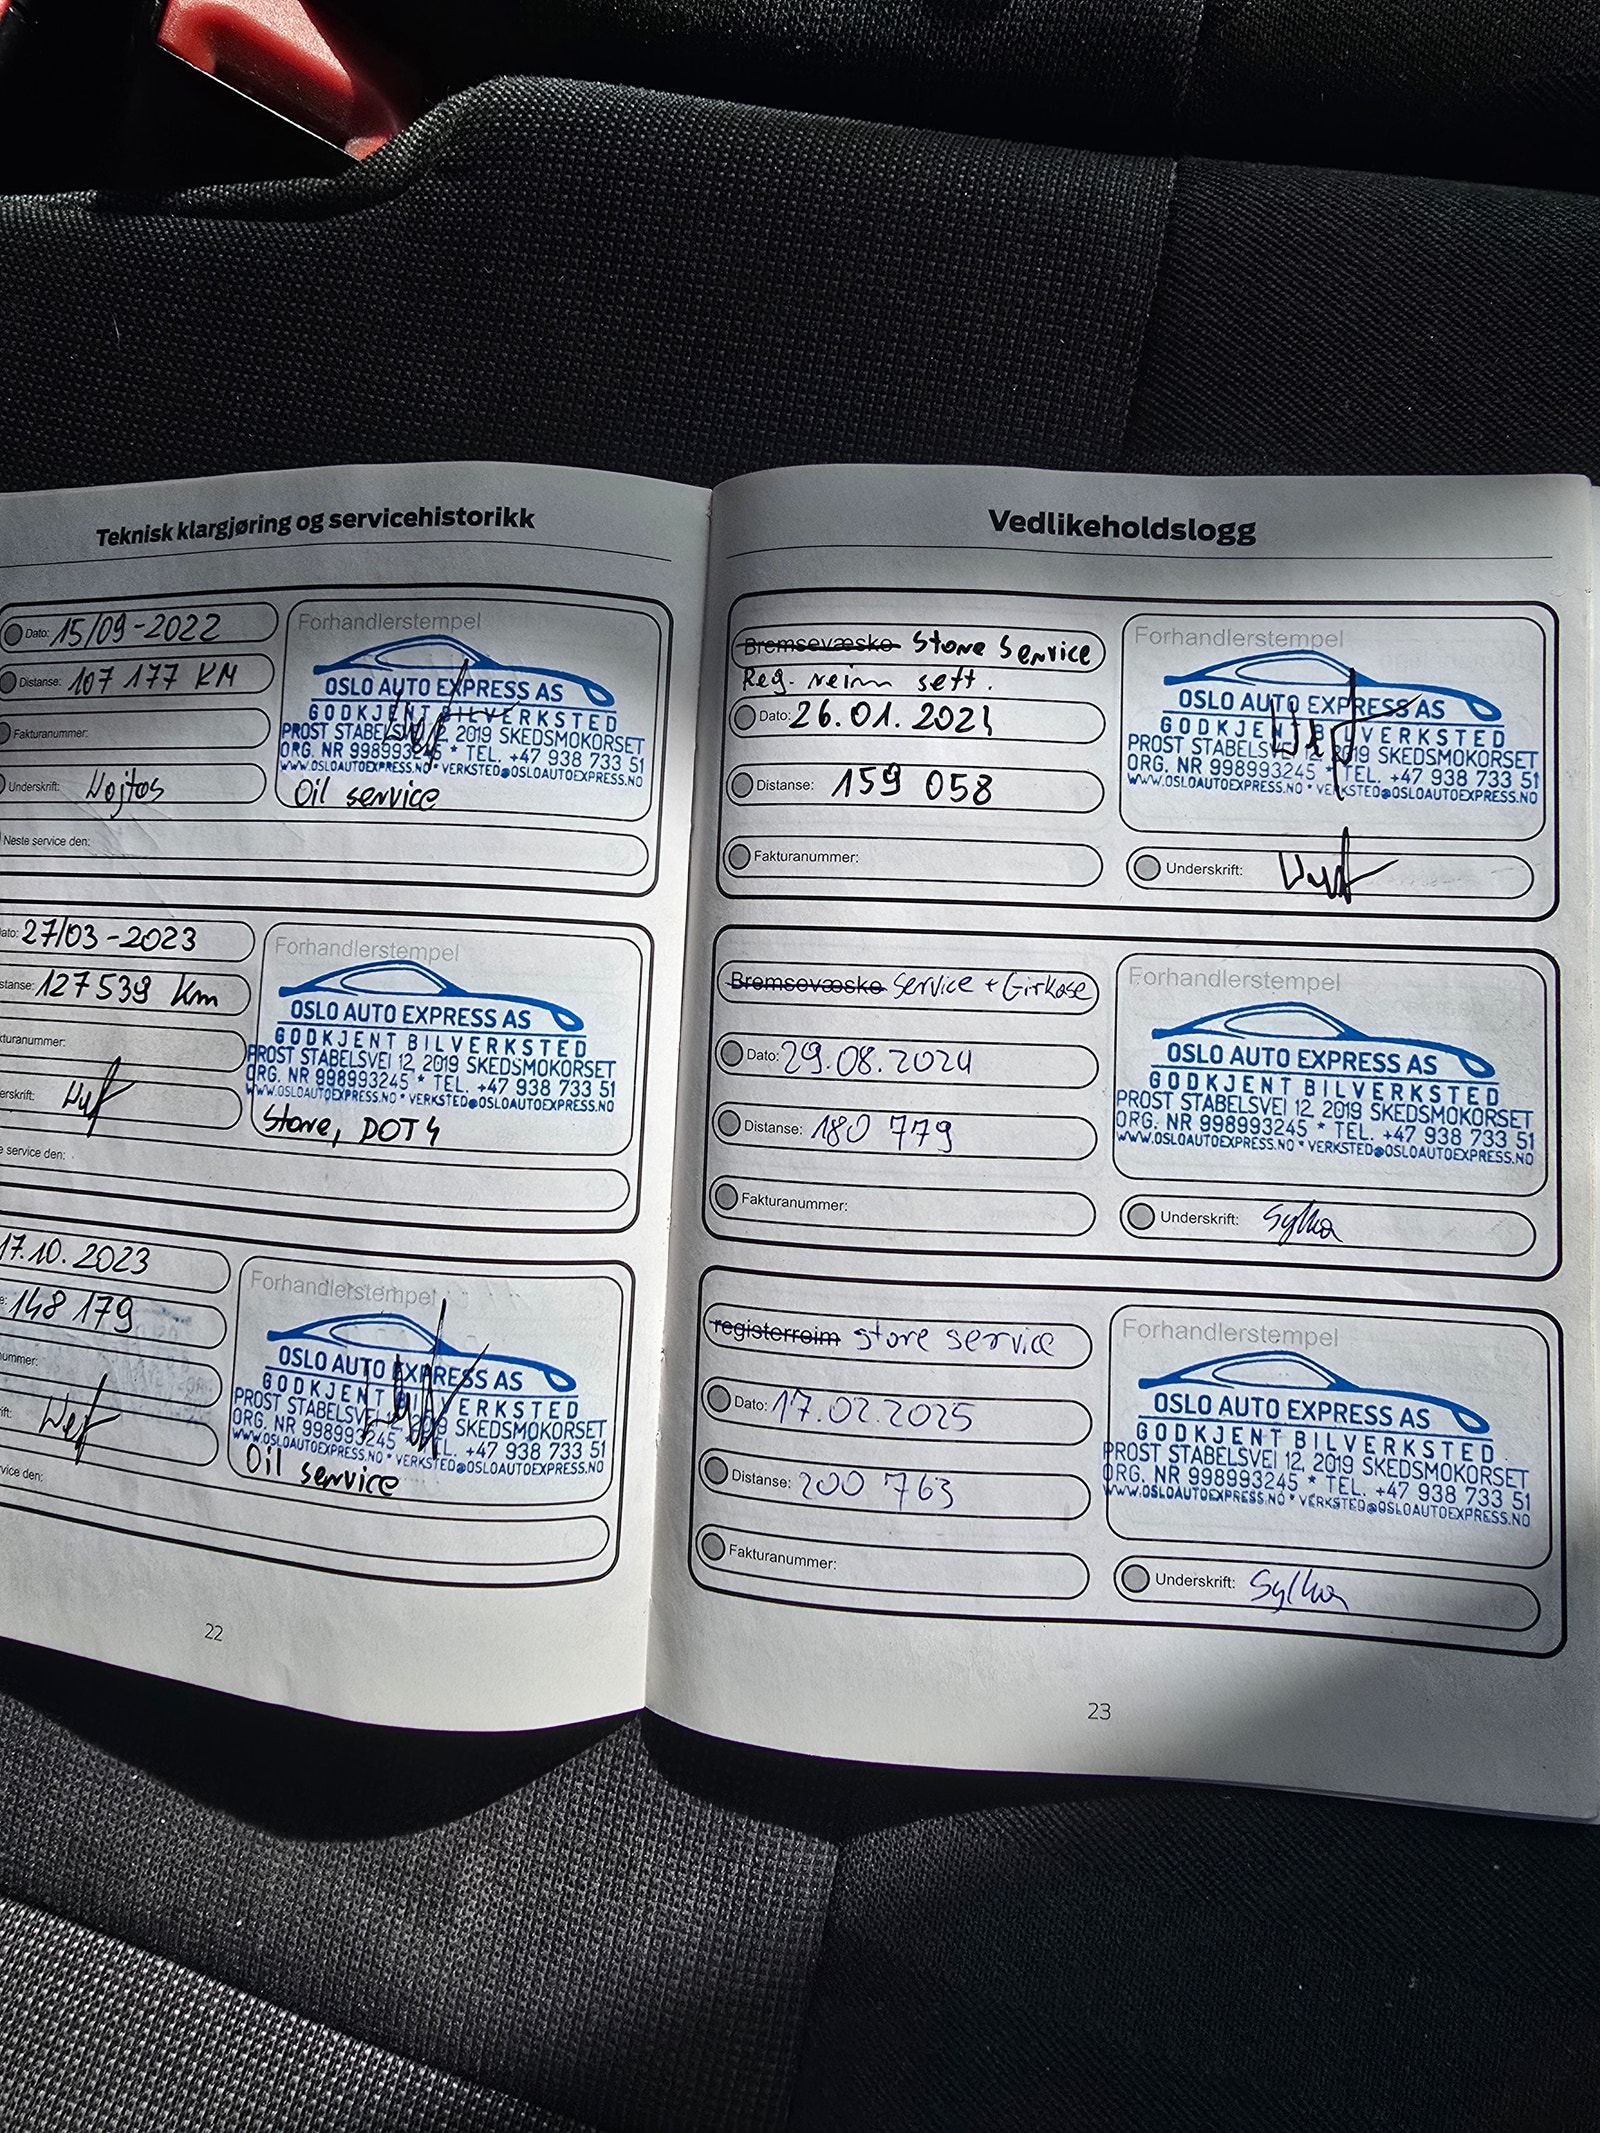 Teknisk klargjøring og servicehistorikk
Dato: 15/09-2022
Distanse: 107 177 KM
Fakturanummer:
Underskrift: Wojtas
Forhandlerstempel
OSLO AUTO EXPRESS AS
GODKJENT BILVERKSTED
PROST STABELSVEI 12, 2019 SKEDSMOKORSET
ORG. NR 998993245 * TEL. +47 938 733 51
WWW.OSLOAUTOEXPRESS.NO * VERKSTED@OSLOAUTOEXPRESS.NO
Oil service
Neste service den:
ato: 27/03-2023
stanse: 127 539 Km
kturanummer:
erskrift:
Forhandlerstempel
OSLO AUTO EXPRESS AS
GODKJENT BILVERKSTED
PROST STABELSVEI 12, 2019 SKEDSMOKORSET
ORG. NR 998993245 * TEL. +47 938 733 51
WWW.OSLOAUTOEXPRESS.NO * VERKSTED@OSLOAUTOEXPRESS.NO
Store, DOT4
e service den:
17.10.2023
e: 148 179
nummer:
ift:
Forhandlerstempel
OSLO AUTO EXPRESS AS
GODKJENT BILVERKSTED
PROST STABELSVEI 12, 2019 SKEDSMOKORSET
ORG. NR 998993245 * TEL. +47 938 733 51
WWW.OSLOAUTOEXPRESS.NO * VERKSTED@OSLOAUTOEXPRESS.NO
Oil service
vice den:
22
Vedlikeholdslogg
Bremsevæske Store Service
Reg. reim sett.
Dato: 26.01.2024
Distanse: 159 058
Fakturanummer:
Forhandlerstempel
OSLO AUTO EXPRESS AS
GODKJENT BILVERKSTED
PROST STABELSVEI 12, 2019 SKEDSMOKORSET
ORG. NR 998993245 * TEL. +47 938 733 51
WWW.OSLOAUTOEXPRESS.NO * VERKSTED@OSLOAUTOEXPRESS.NO
Underskrift:
Bremsevæske Service + Girkasse
Dato: 29.08.2024
Distanse: 180 779
Fakturanummer:
Forhandlerstempel
OSLO AUTO EXPRESS AS
GODKJENT BILVERKSTED
PROST STABELSVEI 12, 2019 SKEDSMOKORSET
ORG. NR 998993245 * TEL. +47 938 733 51
WWW.OSLOAUTOEXPRESS.NO * VERKSTED@OSLOAUTOEXPRESS.NO
Underskrift: Sylwa
registerreim store service
Dato: 17.02.2025
Distanse: 200 763
Fakturanummer:
Forhandlerstempel
OSLO AUTO EXPRESS AS
GODKJENT BILVERKSTED
PROST STABELSVEI 12, 2019 SKEDSMOKORSET
ORG. NR 998993245 * TEL. +47 938 733 51
WWW.OSLOAUTOEXPRESS.NO * VERKSTED@OSLOAUTOEXPRESS.NO
Underskrift: Sylwa
23